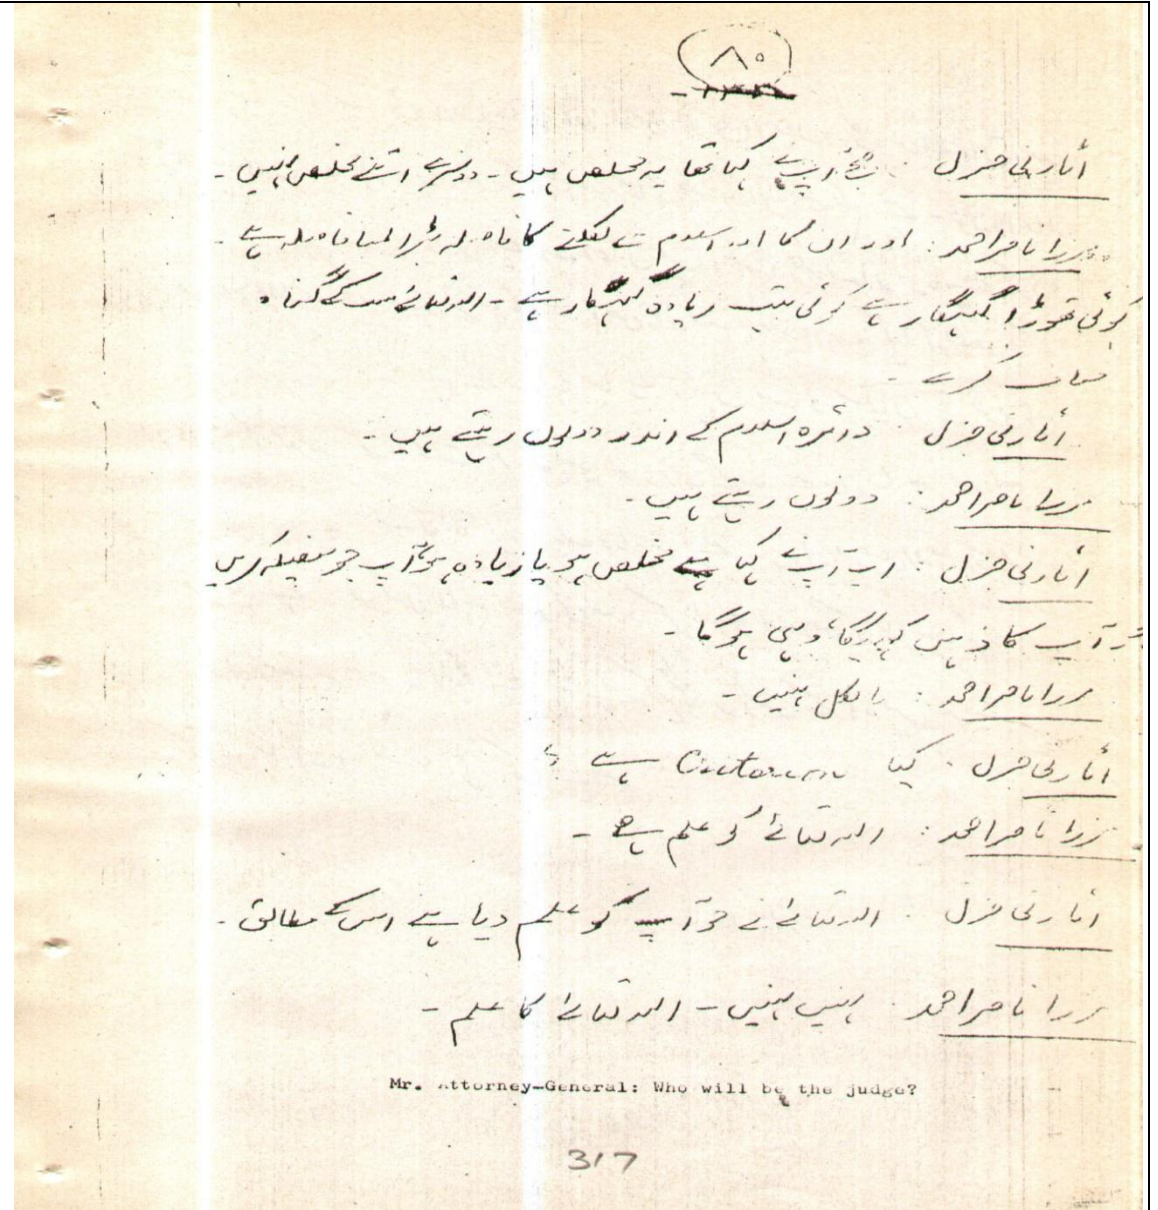 ۸۰
اٹارنی جنرل : آپ نے کہا تھا یہ مخلص ہیں - دوسرے اتنے مخلص نہیں -
مرزا ناصر احمد : اور ان کا اور اسلام سے نکلنے کا فاصلہ بڑا لمبا فاصلہ ہے -
کوئی تھوڑا گنہگار ہے کوئی بہت زیادہ گنہگار ہے - اللہ تعالیٰ سب کے گناہ
معاف کرے -
اٹارنی جنرل : دائرہ اسلام کے اندر دونوں رہتے ہیں -
مرزا ناصر احمد : دونوں رہتے ہیں -
اٹارنی جنرل : اب آپ نے کہا ہے مخلص ہو یا زیادہ ہو آپ جو فیصلہ کریں
آپ کا ذہن کہے گا وہی ہو گا -
مرزا ناصر احمد : بالکل نہیں -
اٹارنی جنرل : کیا Criterion ہے ؟
مرزا ناصر احمد : اللہ تعالیٰ کو علم ہے -
اٹارنی جنرل : اللہ تعالیٰ نے جو آپ کو علم دیا ہے اس کے مطابق -
مرزا ناصر احمد : نہیں نہیں - اللہ تعالیٰ کا علم -
Mr. Attorney-General: Who will be the judge?
317